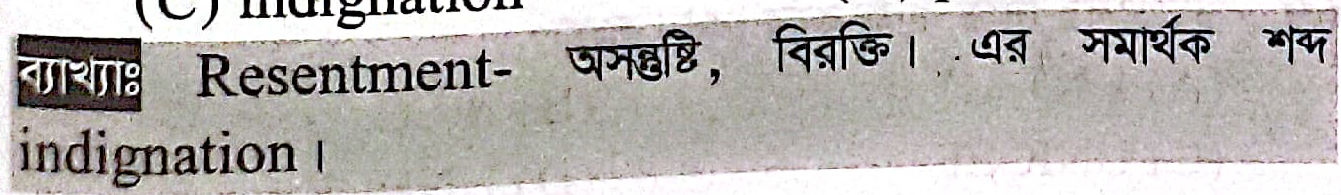 (C) indignation
ব্যাখ্যাঃ Resentment- অসন্তুষ্টি, বিরক্তি। এর সমার্থক শব্দ
indignation।